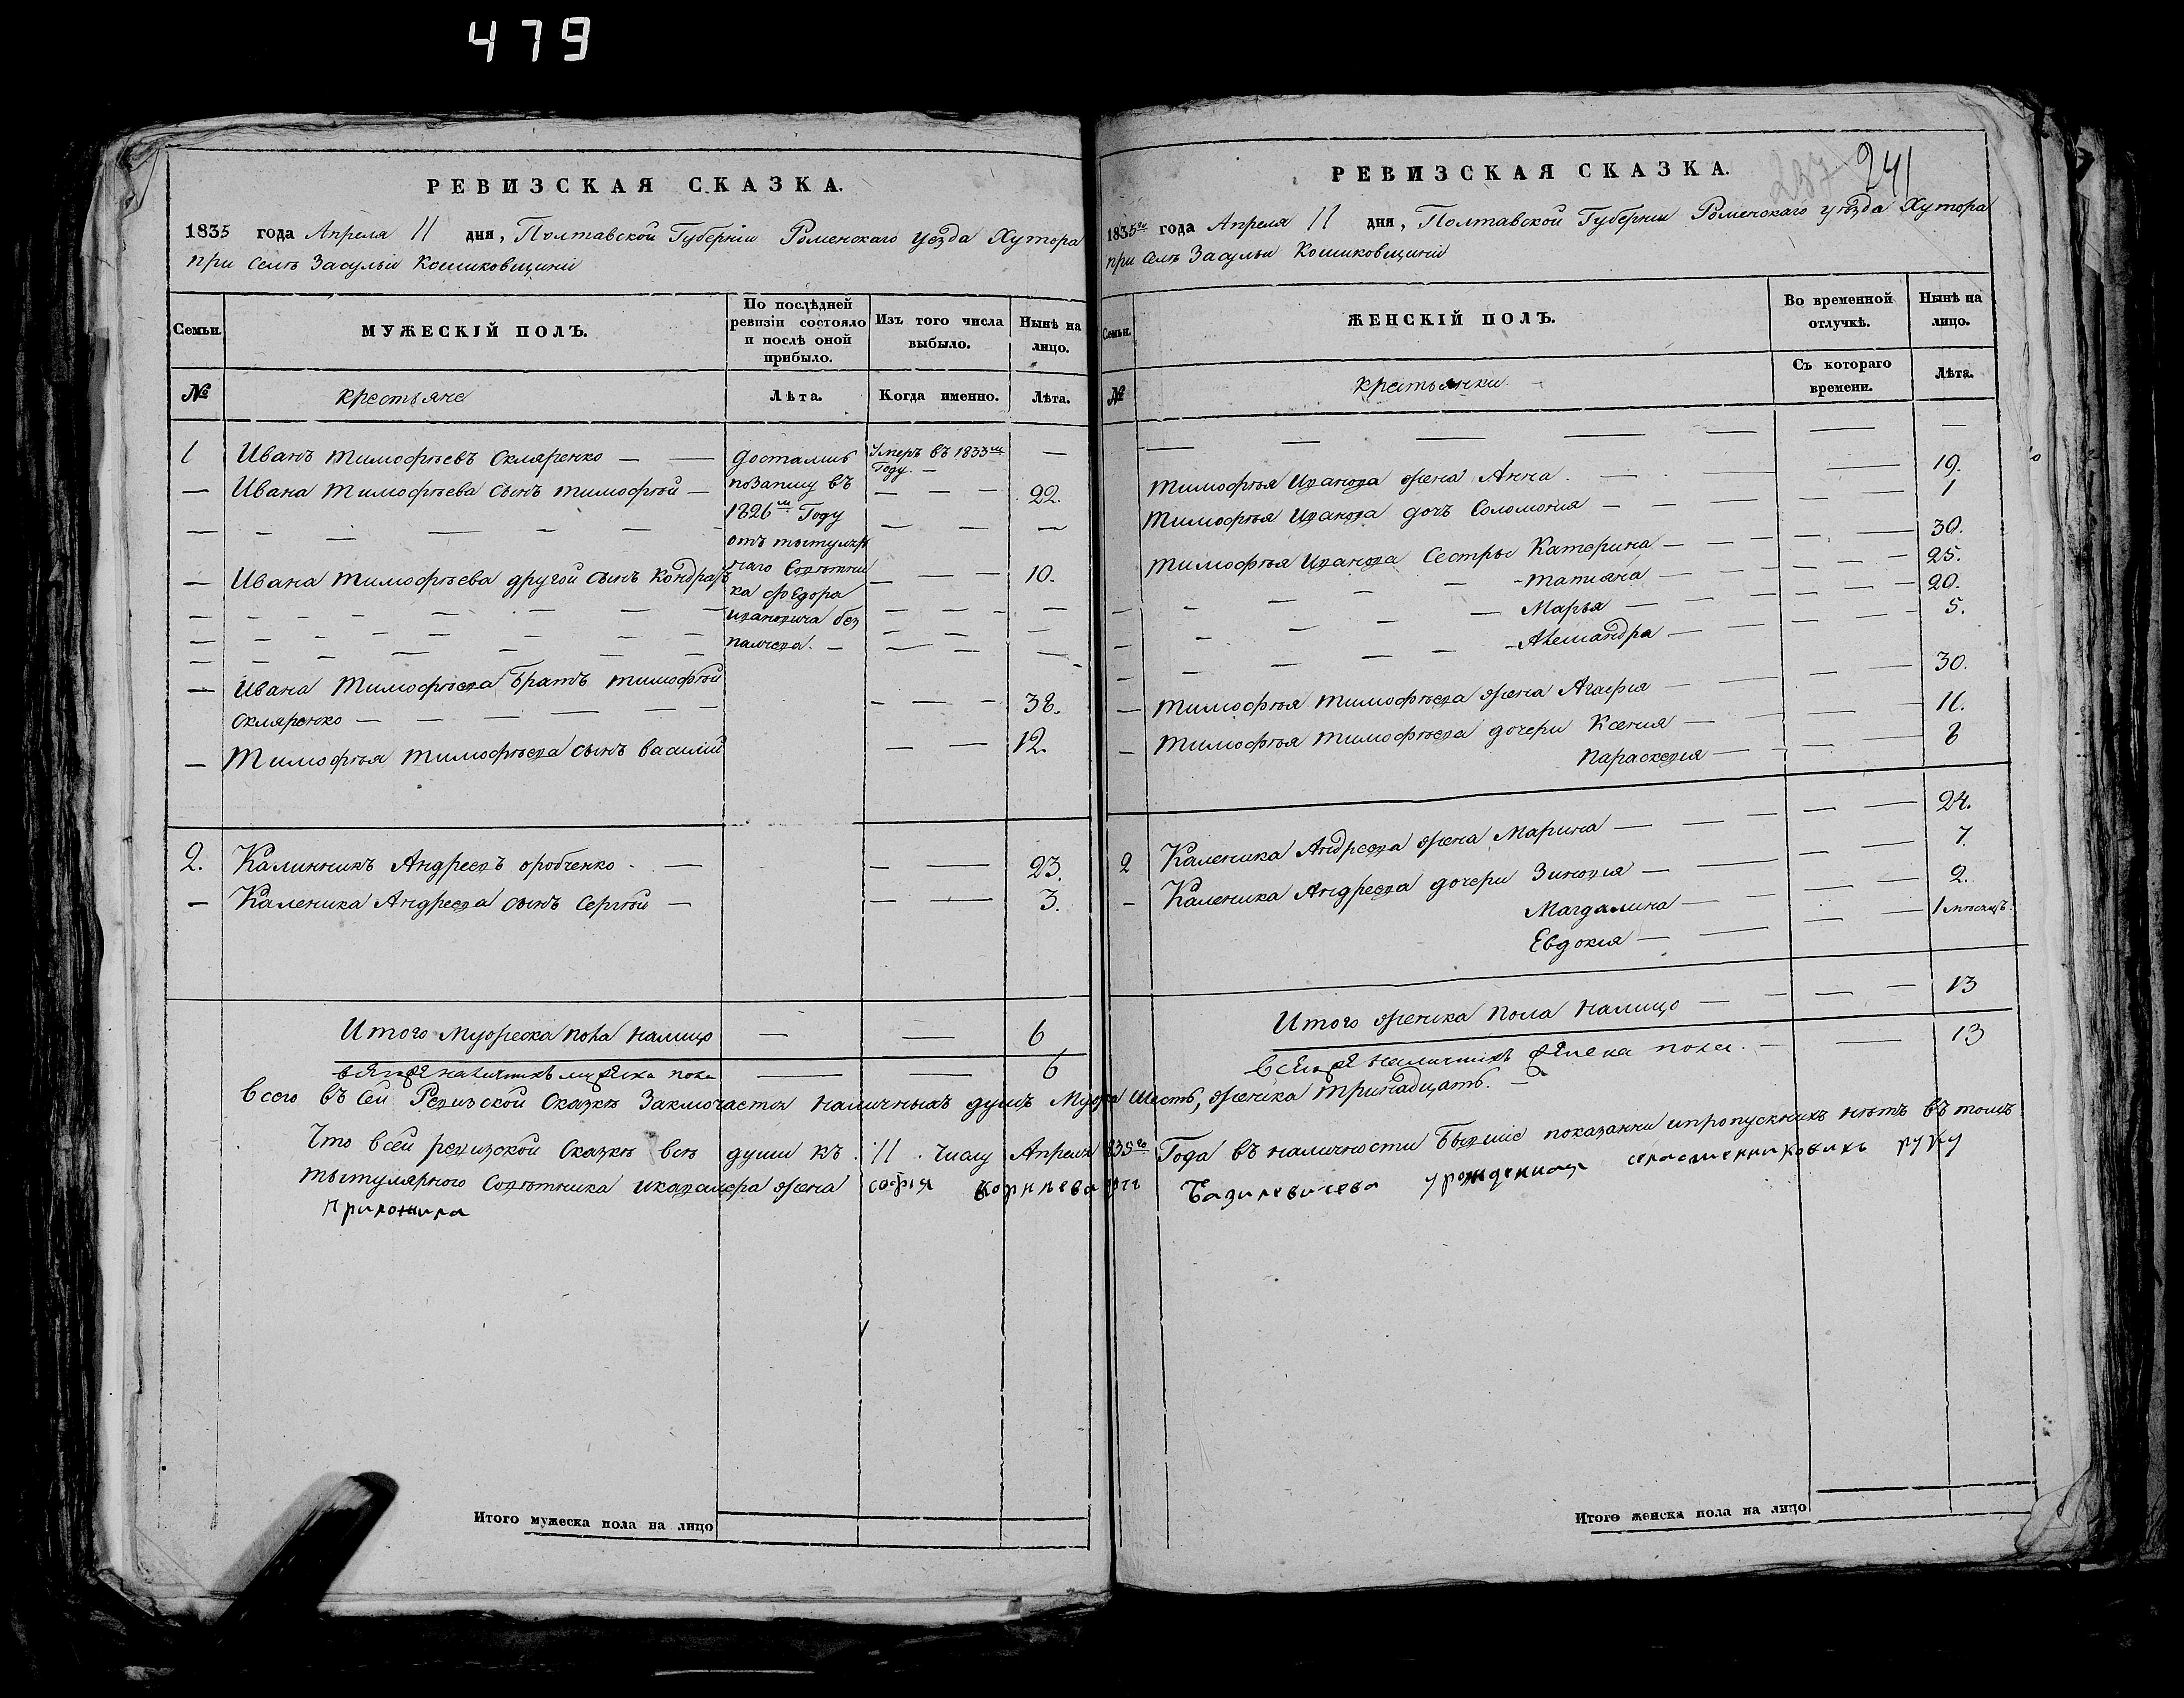 479
РЕВИЗСКАЯ СКАЗКА.
1835 года Апреля 11 дня, Полтавской Губернiи Роменскаго уезда Хутора
при селѣ Засульи Кошиковщинiи
Семьи.
МУЖЕСКIЙ ПОЛЪ.
По послѣдней ревизiи состояло и послѣ оной прибыло.
Изъ того числа выбыло.
Нынѣ на лицо.
№
крестьяне
Лѣта.
Когда именно.
Лѣта.
1 Иванъ тимофѣевъ скляренко — — Умеръ въ 1833м Году. — —
— Ивана тимофѣева сынъ тимофѣй — — — — 22.
— Ивана тимофѣева другой сынъ Кондратъ — — — 10.
— Ивана Тимофѣева братъ тимофѣй
скляренко — — — — — — 38.
— Тимофѣя тимофѣева сынъ василiй — — 12.
достались
позапису въ
1826м Году
отъ тытуляр
наго Совѣтни
ка федора
ивановича баз
палчева. —
2. Калинникъ Андреевъ оробченко — — — 23.
— Каленика Андреева сынъ Сергѣй — — — 3.
Итого Мужеска пола налицо — — 6
всего же наличныхъ мужеска пола — — 6
РЕВИЗСКАЯ СКАЗКА.
237 241
1835го года Апреля 11 дня, Полтавской Губернiи Роменскаго уѣзда Хутора
при селѣ Засульи Кошиковщинiи
Семьи.
ЖЕНСКIЙ ПОЛЪ.
Во временной отлучкѣ.
Нынѣ на лицо.
№
крестьянки
Съ котораго времени.
Лѣта.
тимофѣя иванова жена Анна . — — 19.
тимофѣя иванова дочь Соломонiя — — 1
тимофѣя иванова Сестры Катерина — — 30.
— татiяна — 25.
— Марья — 20.
— Александра — 5.
— тимофѣя тимофѣева жена Агафiя — 30.
— тимофѣя тимофѣева дочери Ксенiя — 11.
Параскевiя — 8
2 Каленика Андреева жена Марина — — 24.
— Каленика Андреева дочери Зиновiя — 7.
Магдалина — 2.
Евдокiя — 1 мѣсяцъ.
Итого женска пола налицо — — 13
всего же наличныхъ женска пола. — — 13
всего въ сей Ревизской сказкѣ заключается наличныхъ душъ Мужеска Шесть, женска тринадцать. —
Что всей ревизской сказкѣ всѣ души къ 11 числу Апреля 1835го Года въ наличности бывшiе показанни ипропускныхъ нѣтъ въ томъ
тытулярного Совѣтника икавалера жена софiя корнѣева дочь Базилевичева урожденная руку
приложила
Итого мужеска пола на лицо
Итого женска пола на лицо